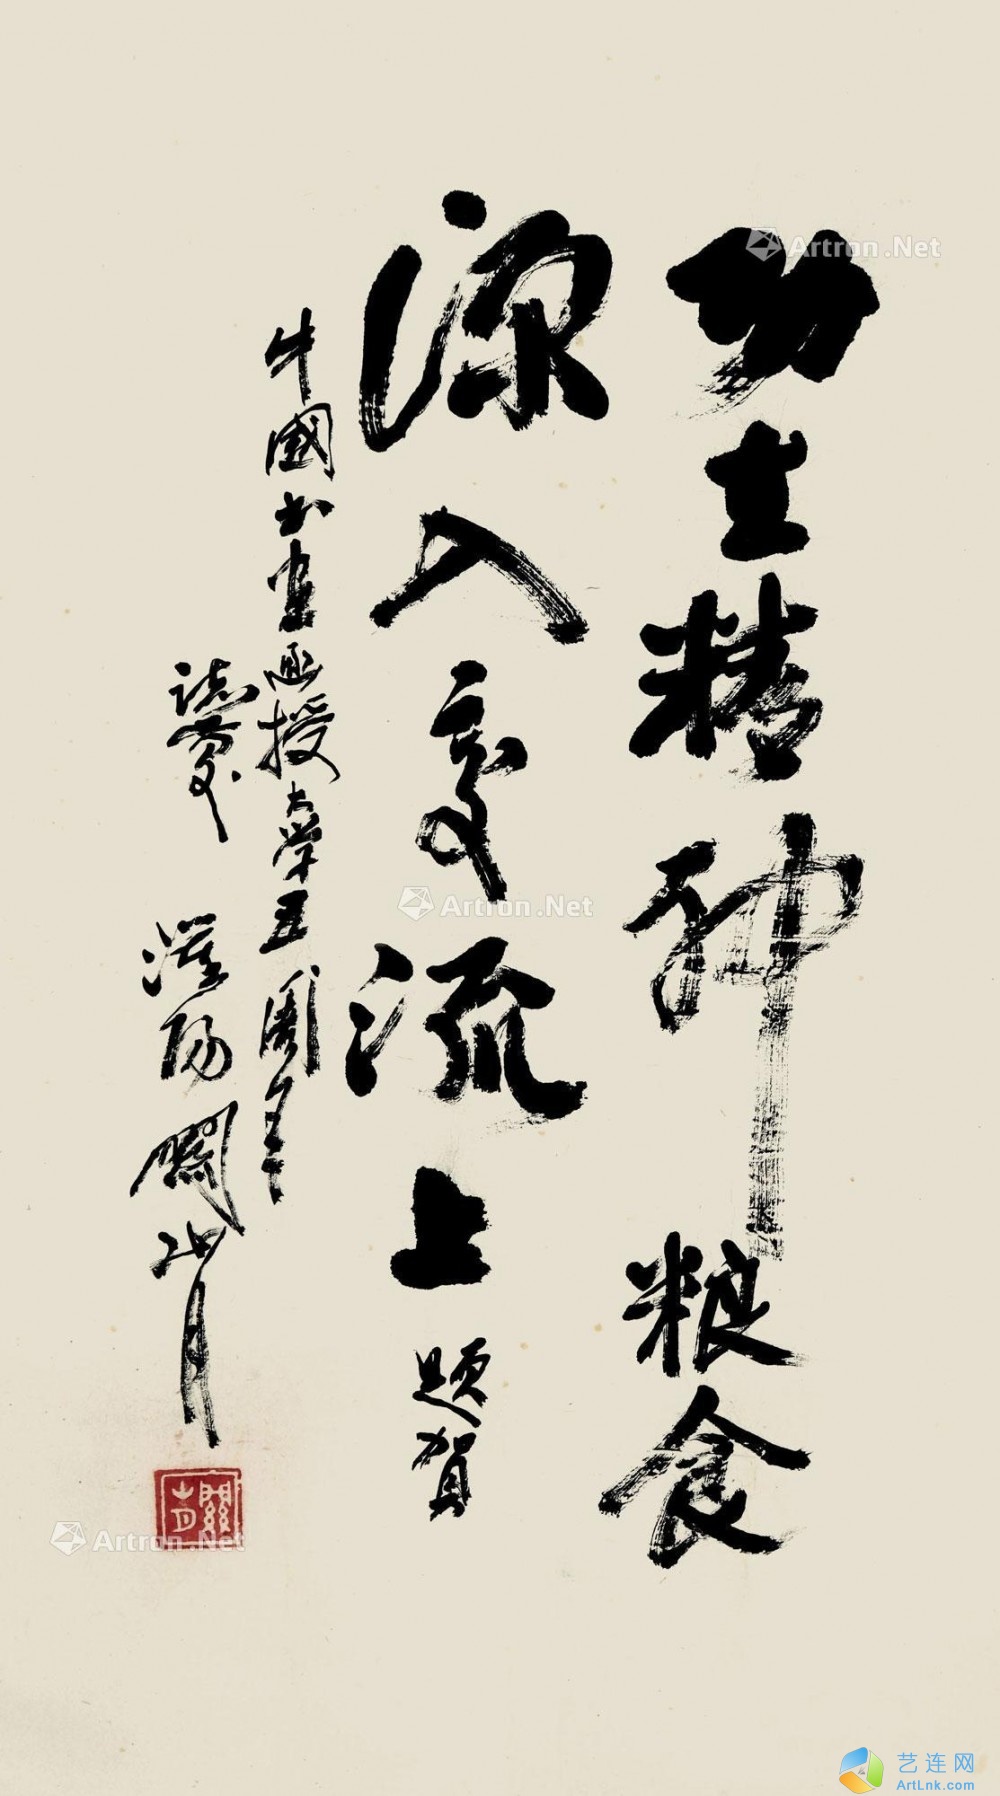 功在精神粮食
源入交流上 题賀
中國书画函授大学五周年
誌慶 漠阳關山月
Artron.Net
Artron.Net
Artron.Net
艺连网
ArtLnk.com